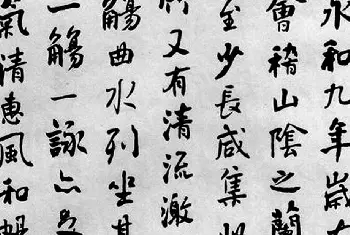 永和九年歲
會稽山陰之蘭
至少長咸集
又有清流激
觴曲水列坐其
一觴一詠亦足
氣清惠風和暢